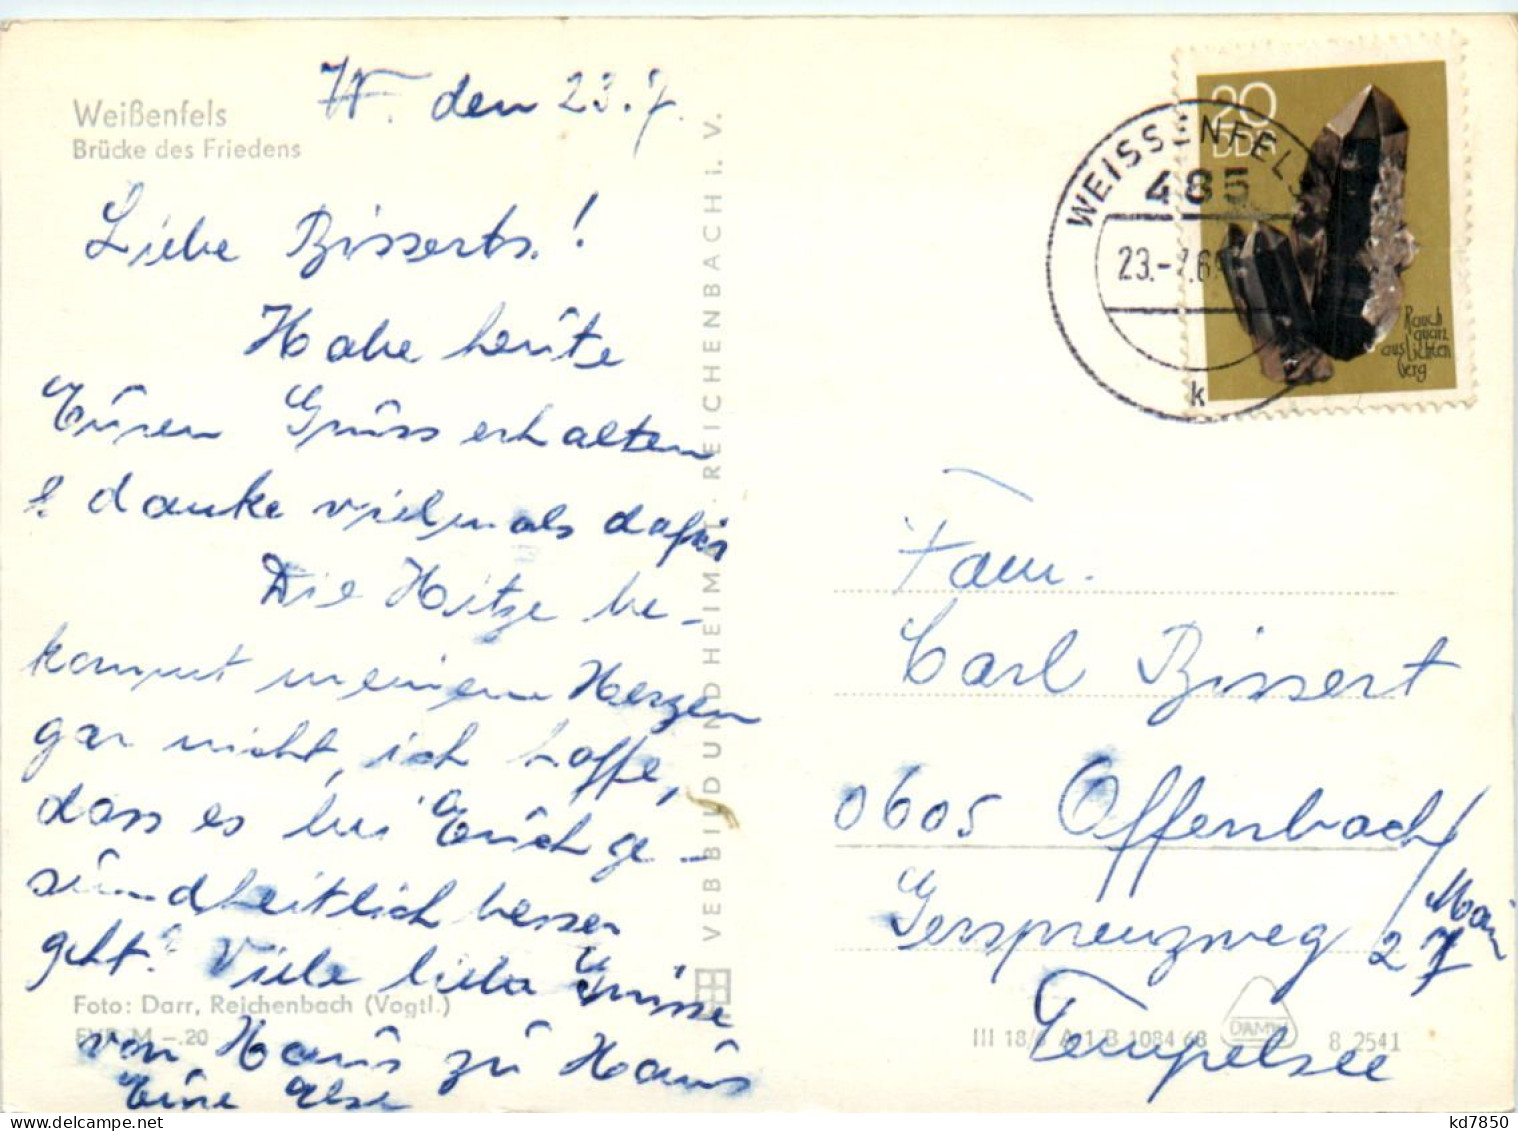 Weißenfels
Brücke des Friedens
W. den 23.7.
Liebe Bisserts!
Habe heute
Euren Gruss erhalten
& danke vielmals dafür
Die Hitze be-
kommt meinem Herzen
gar nicht, ich hoffe,
dass es bei Euch ge-
sundheitlich besser
geht. Viele liebe Grüsse
von Haus zu Haus
Eure Else
Foto: Darr, Reichenbach (Vogtl.)
EVP M -.20
VEB BILD UND HEIMAT REICHENBACH i. V.
20
DDR
Rauch
quarz
aus Lichten
berg
WEISSENFELS
485
23.-7.69
k
Fam.
Carl Bissert
0605 Offenbach/
Main
Gersprenzweg 27
Tempelsee
III 18/ A 1 B 1084 68 DAMW 8 2541
kd7850